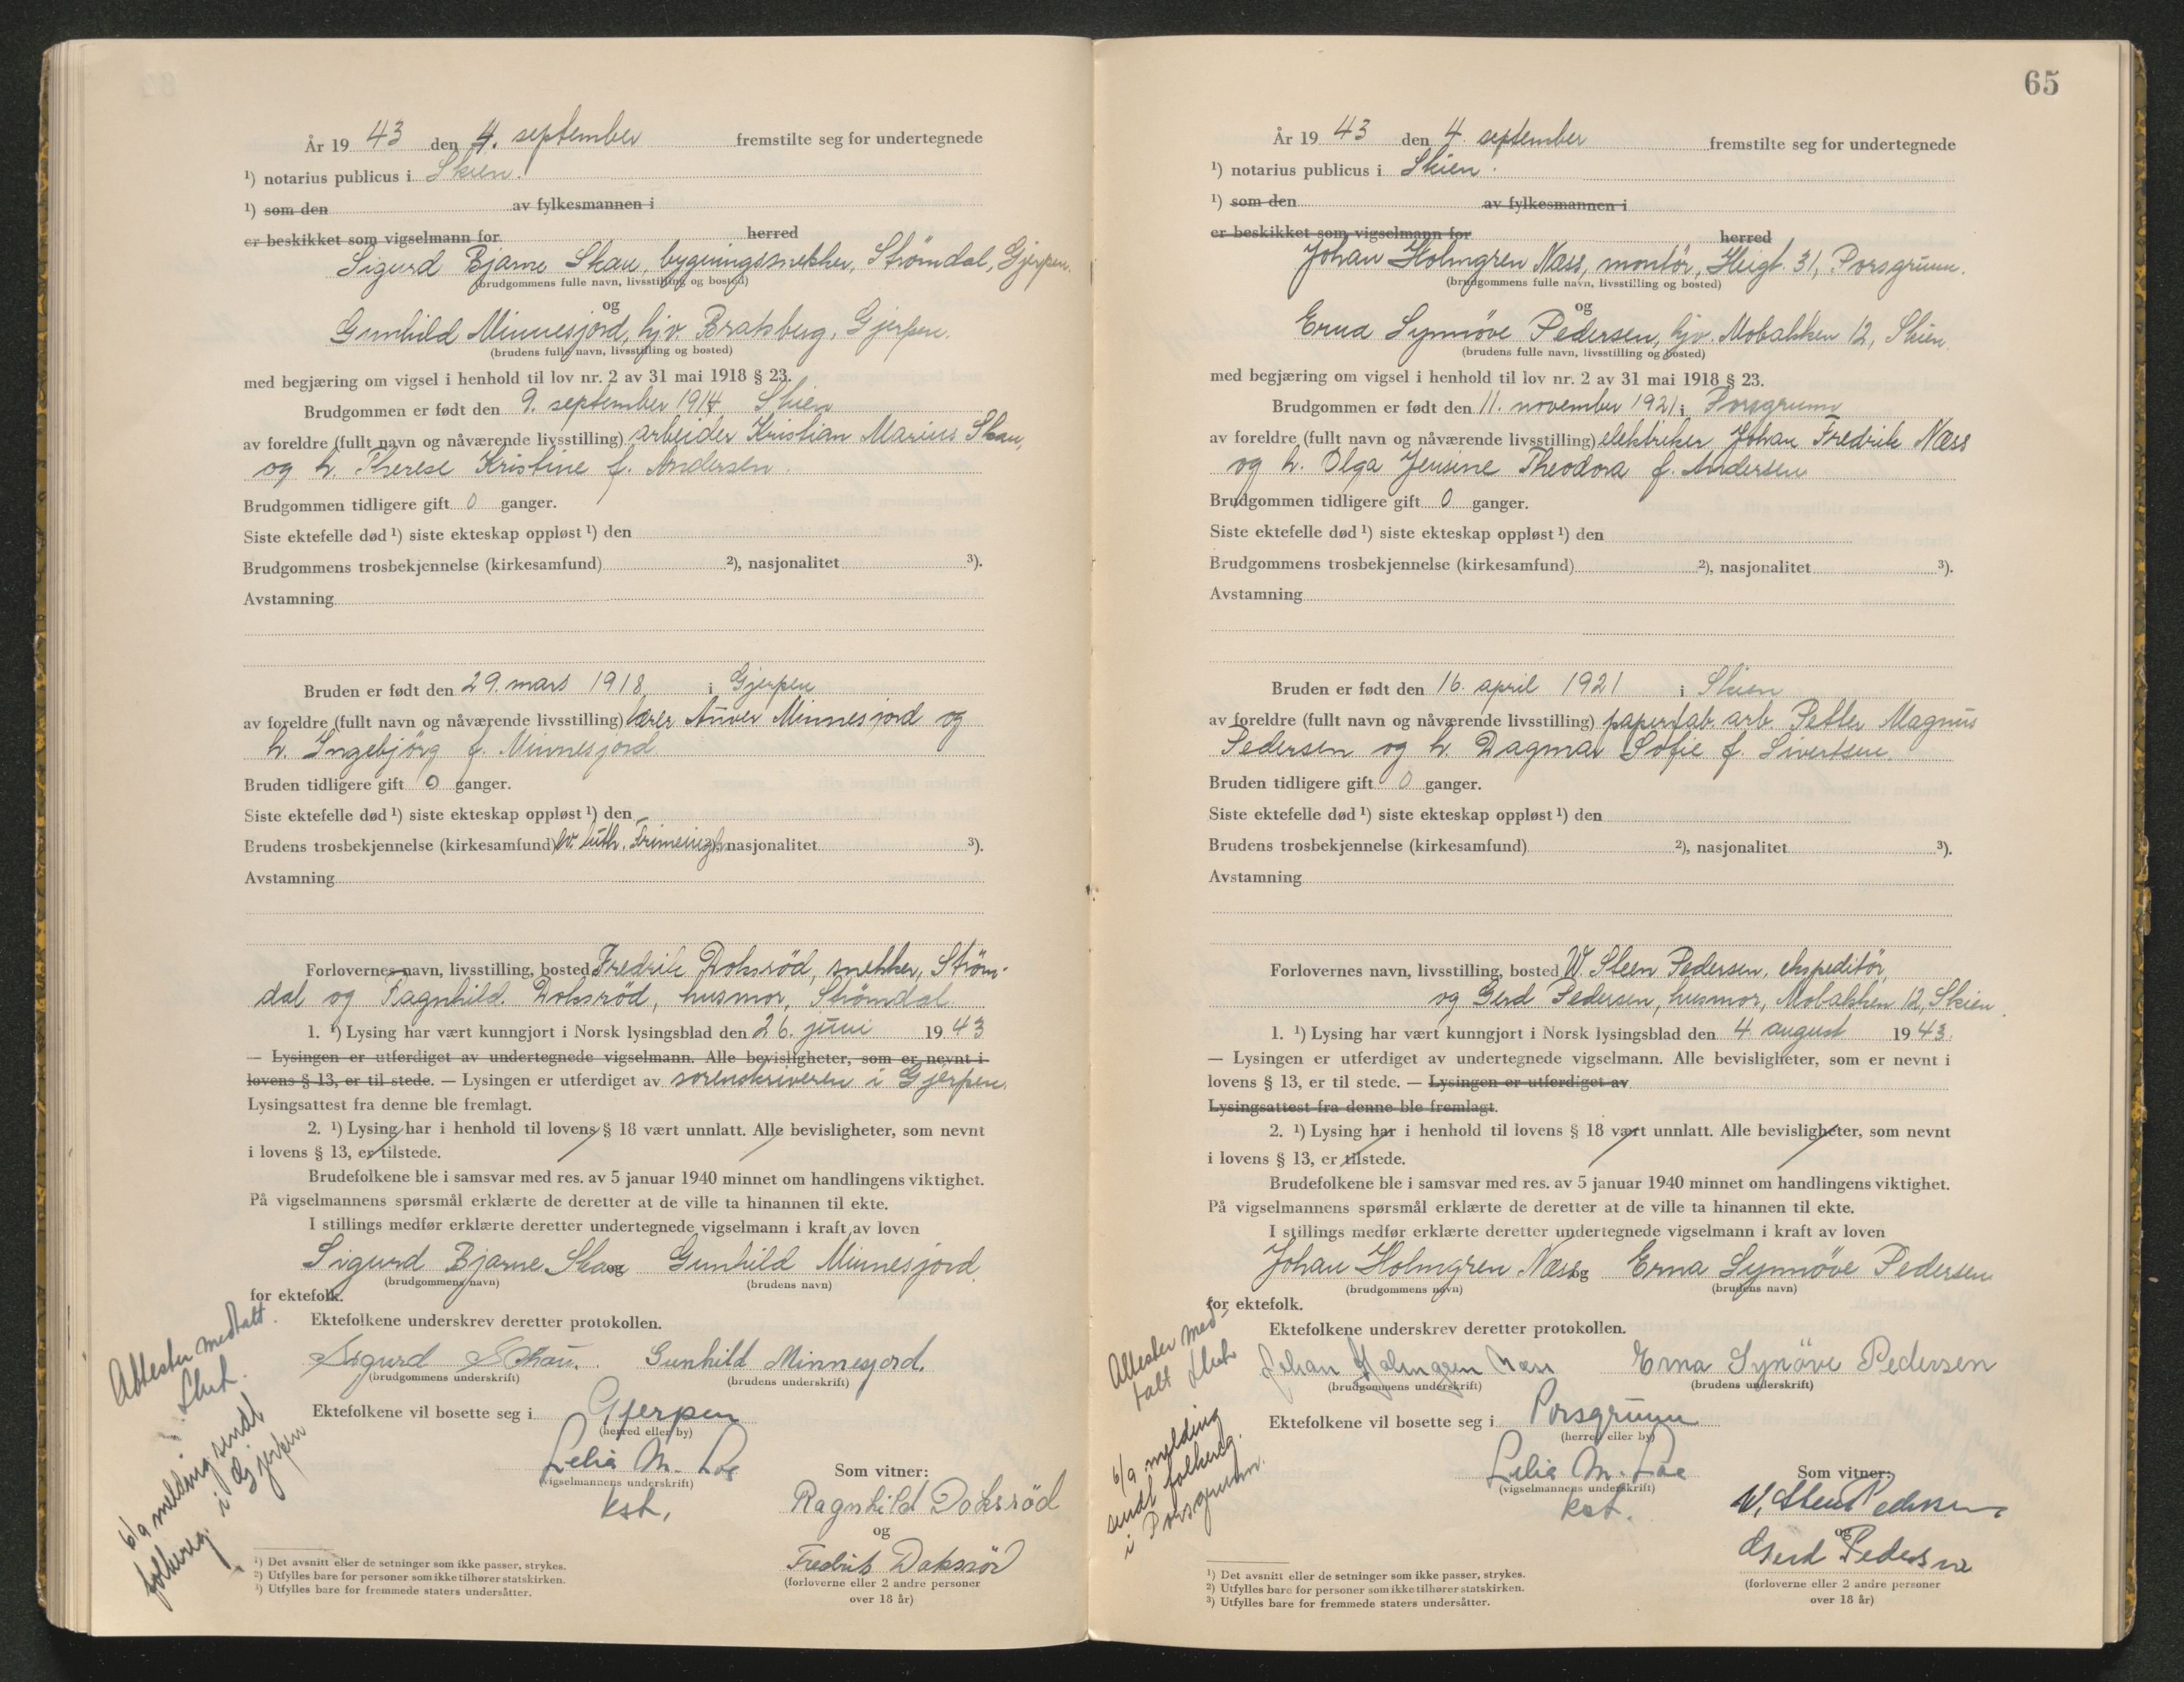 År 19 43 den 4. september fremstilte seg for undertegnede
¹) notarius publicus i Skien.
¹) som den av fylkesmannen i
er beskikket som vigselmann for herred
Sigurd Bjarne Skau, bygningssnekker, Strömdal, Gjerpen.
(brudgommens fulle navn, livsstilling og bosted)
og
Gunhild Minnesjord, hjv. Bratsberg, Gjerpen.
(brudens fulle navn, livsstilling og bosted)
med begjæring om vigsel i henhold til lov nr. 2 av 31 mai 1918 § 23.
Brudgommen er født den 9. september 1914 Skien
av foreldre (fullt navn og nåværende livsstilling) arbeider Kristian Marius Skau,
og h. Therese Kristine f. Andersen.
Brudgommen tidligere gift 0 ganger.
Siste ektefelle død ¹) siste ekteskap oppløst ¹) den
Brudgommens trosbekjennelse (kirkesamfund) ²), nasjonalitet ³).
Avstamning
Bruden er født den 29. mars 1918 i Gjerpen
av foreldre (fullt navn og nåværende livsstilling) lærer Anver Minnesjord og
h. Ingebjörg f. Minnesjord
Bruden tidligere gift 0 ganger.
Siste ektefelle død ¹) siste ekteskap oppløst ¹) den
Brudens trosbekjennelse (kirkesamfund) ev. luth. frimenigh. nasjonalitet ³).
Avstamning
Forlovernes navn, livsstilling, bosted Fredrik Doksröd, snekker, Ström-
dal og Ragnhild Doksröd, husmor, Strömdal.
1. ¹) Lysing har vært kunngjort i Norsk lysingsblad den 26. juni 19 43
— Lysingen er utferdiget av undertegnede vigselmann. Alle bevisligheter, som er nevnt i
lovens § 13, er til stede. — Lysingen er utferdiget av sorenskriveren i Gjerpen.
Lysingsattest fra denne ble fremlagt.
2. ¹) Lysing har i henhold til lovens § 18 vært unnlatt. Alle bevisligheter, som nevnt
i lovens § 13, er tilstede.
Brudefolkene ble i samsvar med res. av 5 januar 1940 minnet om handlingens viktighet.
På vigselmannens spørsmål erklærte de deretter at de ville ta hinannen til ekte.
I stillings medfør erklærte deretter undertegnede vigselmann i kraft av loven
Sigurd Bjarne Skau og Gunhild Minnesjord
(brudgommens navn) (brudens navn)
for ektefolk.
Ektefolkene underskrev deretter protokollen.
Sigurd Skau. Gunhild Minnesjord.
(brudgommens underskrift) (brudens underskrift)
Ektefolkene vil bosette seg i Gjerpen
(herred eller by)
Lelia M. Loe
(vigselmannens underskrift)
kst.
Som vitner:
Ragnhild Doksröd
og
Fredrik Doksröd
(forloverne eller 2 andre personer
over 18 år)
Attester medtatt.
6/9 melding sendt
folkereg. i Gjerpen
¹) Det avsnitt eller de setninger som ikke passer, strykes.
²) Utfylles bare for personer som ikke tilhører statskirken.
³) Utfylles bare for fremmede staters undersåtter.
65
År 19 43 den 4. september fremstilte seg for undertegnede
¹) notarius publicus i Skien.
¹) som den av fylkesmannen i
er beskikket som vigselmann for herred
Johan Holmgren Næss, montör, Heigt. 31, Porsgrunn.
(brudgommens fulle navn, livsstilling og bosted)
og
Erna Synnöve Pedersen, hjv. Mobakken 12, Skien.
(brudens fulle navn, livsstilling og bosted)
med begjæring om vigsel i henhold til lov nr. 2 av 31 mai 1918 § 23.
Brudgommen er født den 11. november 1921 i Porsgrunn
av foreldre (fullt navn og nåværende livsstilling) elektriker Johan Fredrik Næss
og h. Olga Jensine Theodora f. Andersen
Brudgommen tidligere gift 0 ganger.
Siste ektefelle død ¹) siste ekteskap oppløst ¹) den
Brudgommens trosbekjennelse (kirkesamfund) ²), nasjonalitet ³).
Avstamning
Bruden er født den 16. april 1921 i Skien
av foreldre (fullt navn og nåværende livsstilling) papirfab. arb. Petter Magnus
Pedersen og h. Dagmar Sofie f. Sivertsen.
Bruden tidligere gift 0 ganger.
Siste ektefelle død ¹) siste ekteskap oppløst ¹) den
Brudens trosbekjennelse (kirkesamfund) ²), nasjonalitet ³).
Avstamning
Forlovernes navn, livsstilling, bosted W. Steen Pedersen, ekspeditör,
og Gerd Pedersen, husmor, Mobakken 12, Skien.
1. ¹) Lysing har vært kunngjort i Norsk lysingsblad den 4. august 19 43.
— Lysingen er utferdiget av undertegnede vigselmann. Alle bevisligheter, som er nevnt i
lovens § 13, er til stede. — Lysingen er utferdiget av
Lysingsattest fra denne ble fremlagt.
2. ¹) Lysing har i henhold til lovens § 18 vært unnlatt. Alle bevisligheter, som nevnt
i lovens § 13, er tilstede.
Brudefolkene ble i samsvar med res. av 5 januar 1940 minnet om handlingens viktighet.
På vigselmannens spørsmål erklærte de deretter at de ville ta hinannen til ekte.
I stillings medfør erklærte deretter undertegnede vigselmann i kraft av loven
Johan Holmgren Næss og Erna Synnöve Pedersen
(brudgommens navn) (brudens navn)
for ektefolk.
Ektefolkene underskrev deretter protokollen.
Johan Holmgren Næss Erna Synöve Pedersen
(brudgommens underskrift) (brudens underskrift)
Ektefolkene vil bosette seg i Porsgrunn
(herred eller by)
Lelia M. Loe
(vigselmannens underskrift)
kst.
Som vitner:
W. Steen Pedersen
og
Gerd Pedersen
(forloverne eller 2 andre personer
over 18 år)
Attester med-
tatt
6/9 melding
sendt folkereg.
i Porsgrunn.
¹) Det avsnitt eller de setninger som ikke passer, strykes.
²) Utfylles bare for personer som ikke tilhører statskirken.
³) Utfylles bare for fremmede staters undersåtter.